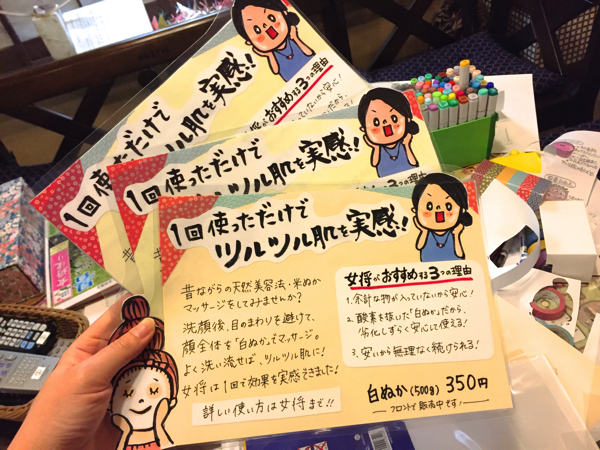 1回使っただけで
ツルツル肌を実感!!
昔ながらの天然美容法・米ぬか
マッサージをしてみませんか?
洗顔後、目のまわりを避けて、
顔全体を"白ぬか"でマッサージ。
よく洗い流せば、ツルツル肌に!
女将は1回で効果を実感できました!
詳しい使い方は女将まで!!
女将がおすすめする3つの理由
1.余計な物が入っていないから安心!
2.酸素を抜いた"白ぬか"だから、
劣化しずらく安心して使える!
3.安いから無理なく続けられる!
白ぬか(500g)350円
フロントで販売中です!
1回使っただけで
ツルツル肌を実感!!
すすめする3つの理由
1回使っただけで
ツル肌を実感!!
がおすすめする3つの理由
っていないから安心!